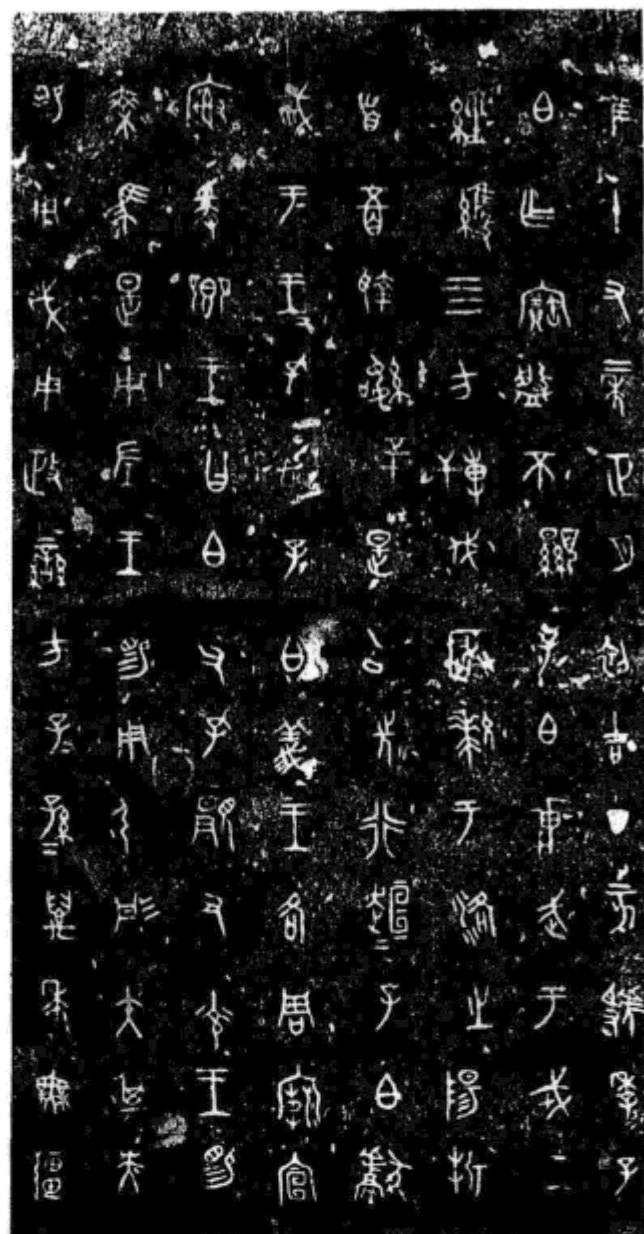 隹十又二年正月初吉丁亥虢季子
白乍寶盤不顯子白𤕌武于戎工
經維四方搏伐玁狁于洛之陽折
首五百執訊五十是以先行趄趄子白獻
馘于王王孔加子白義王各周廟宣
廟爰鄉王曰白父孔顯又光王賜
乘馬是用左王賜用弓彤矢其央
賜用戉用政蠻方子子孫孫萬年無疆